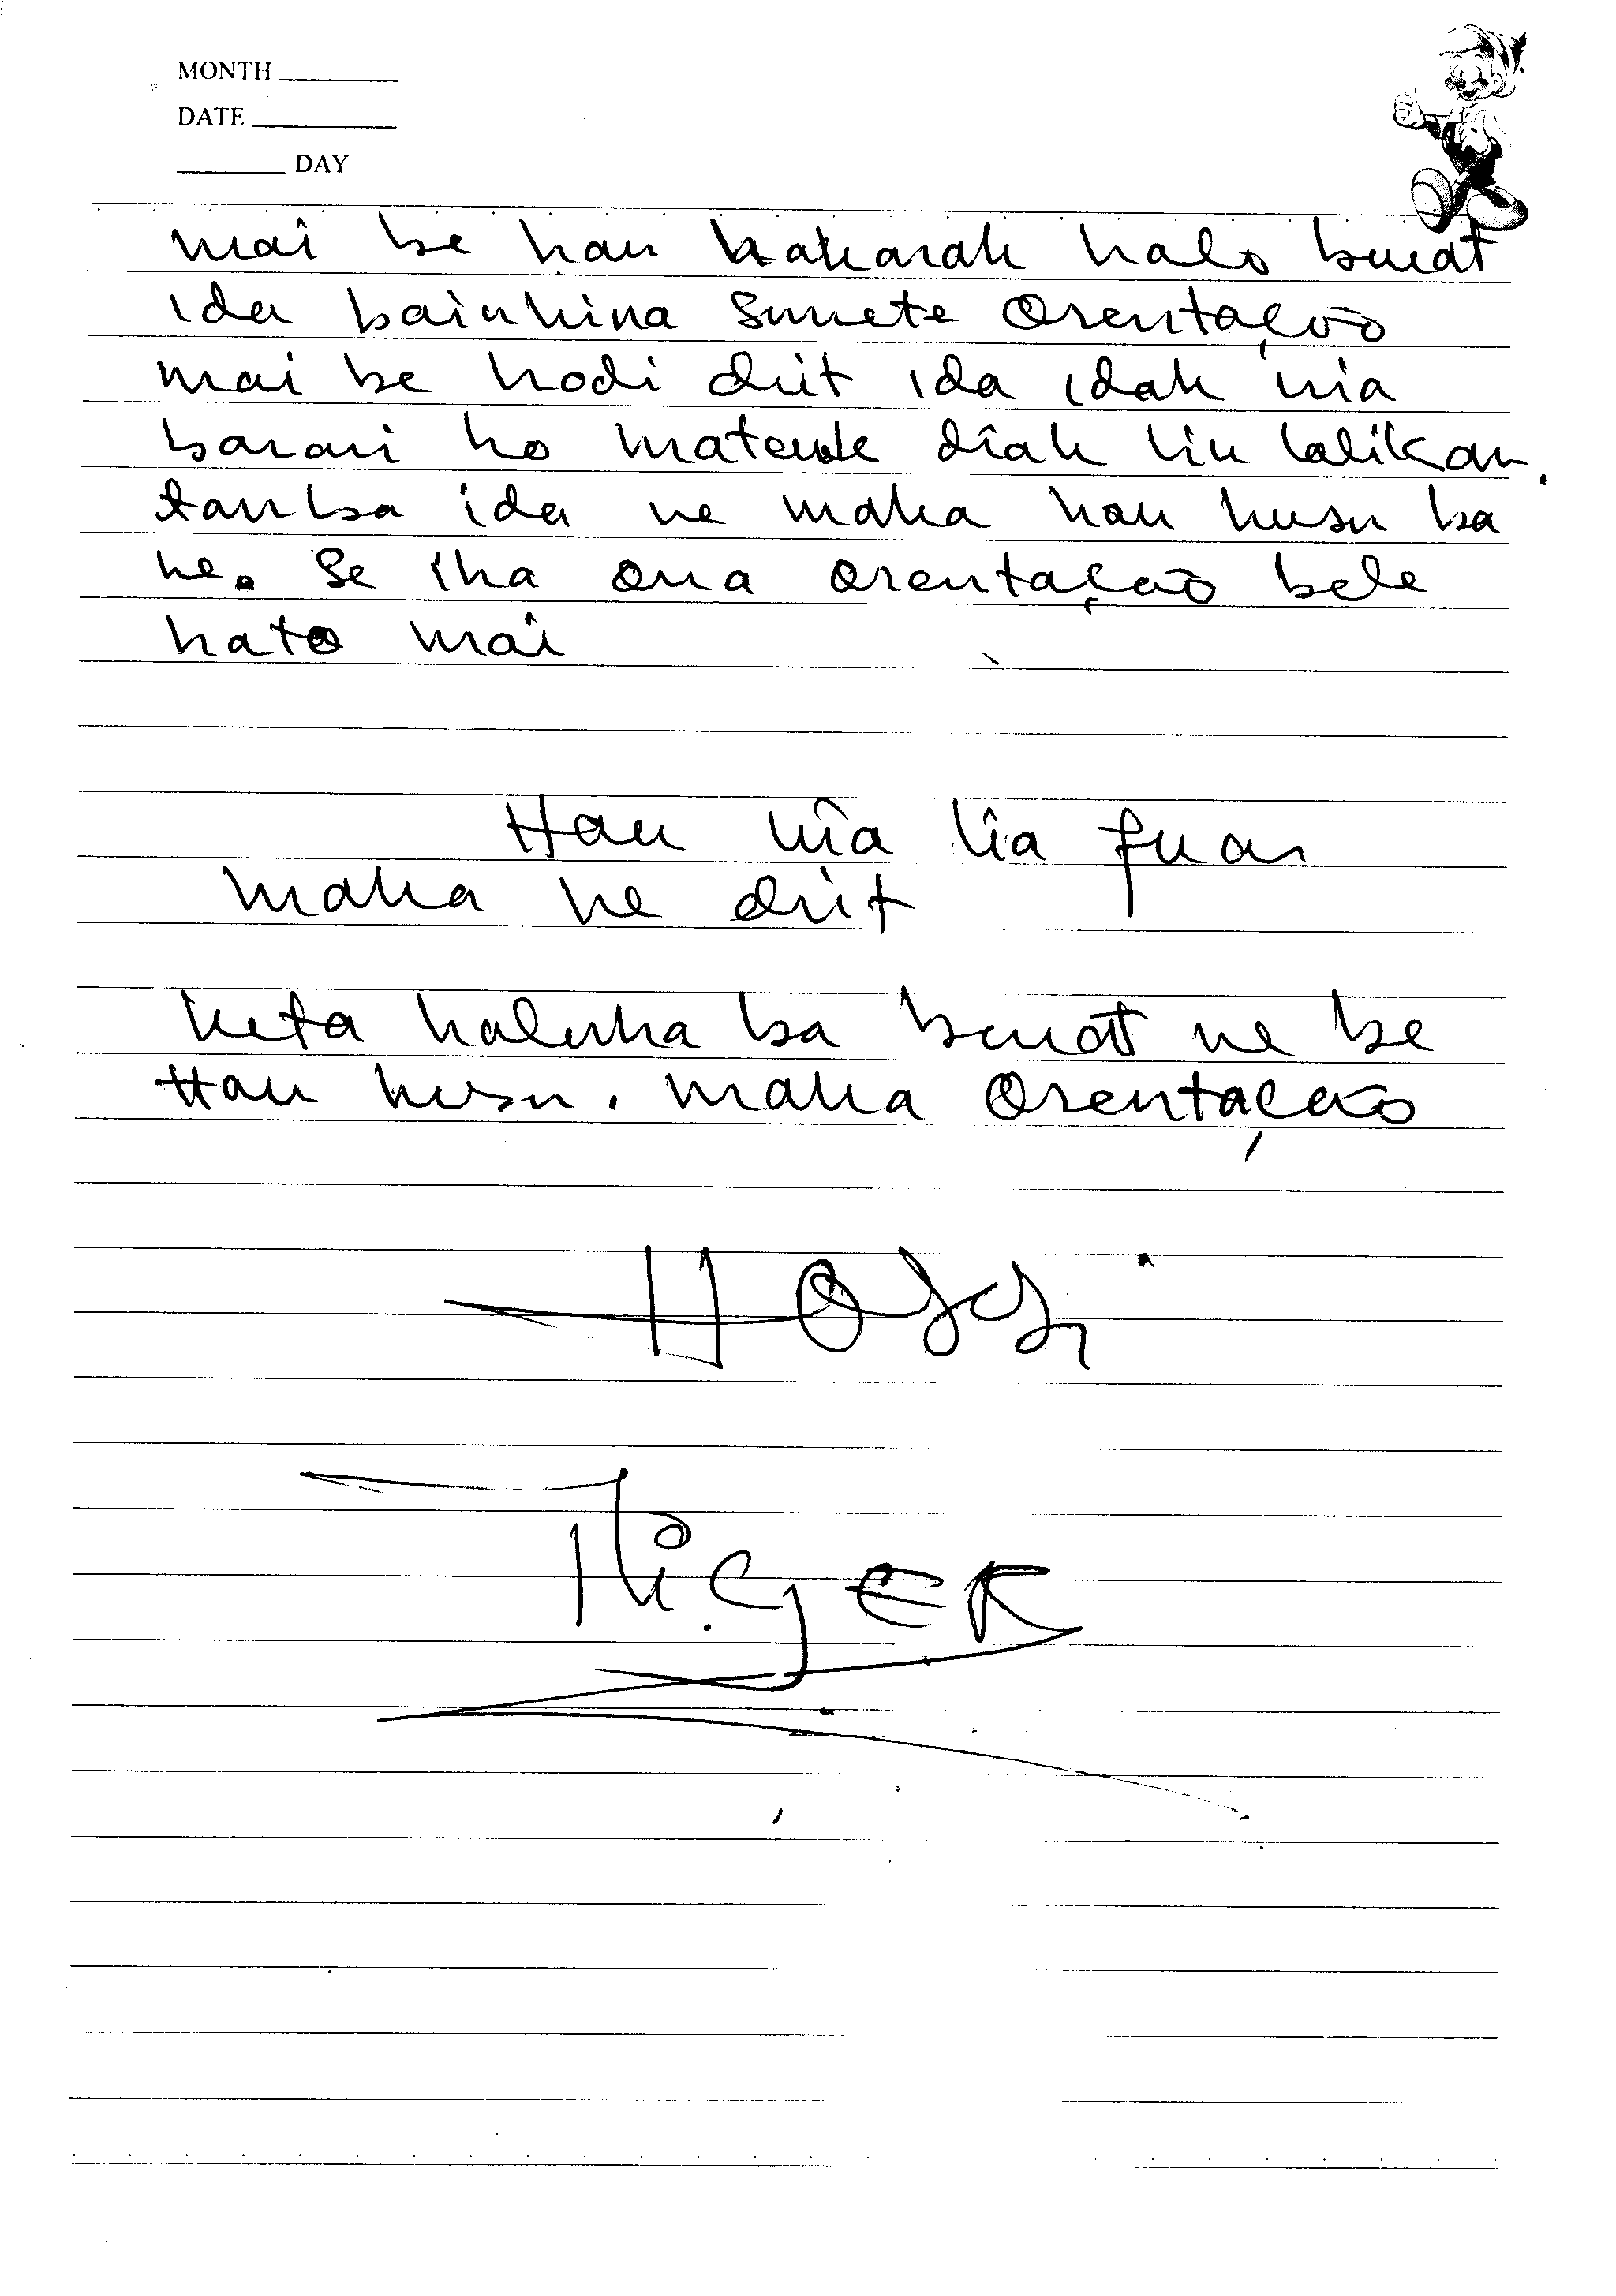 MONTH
DATE
DAY
mai be hau hakarak halo buat
ida bainhina simete Orentação
mai be hodi diit ida idak nia
barani ho matenek diak liu lalikan.
tanba ida ne maka hau husu ba
ne. Se iha ona orentação bele
hato mai
Hau nia lia fuan
maka ne diit
keta haluha ba buat ne be
Hau husu. maka Orentação
HOSCI